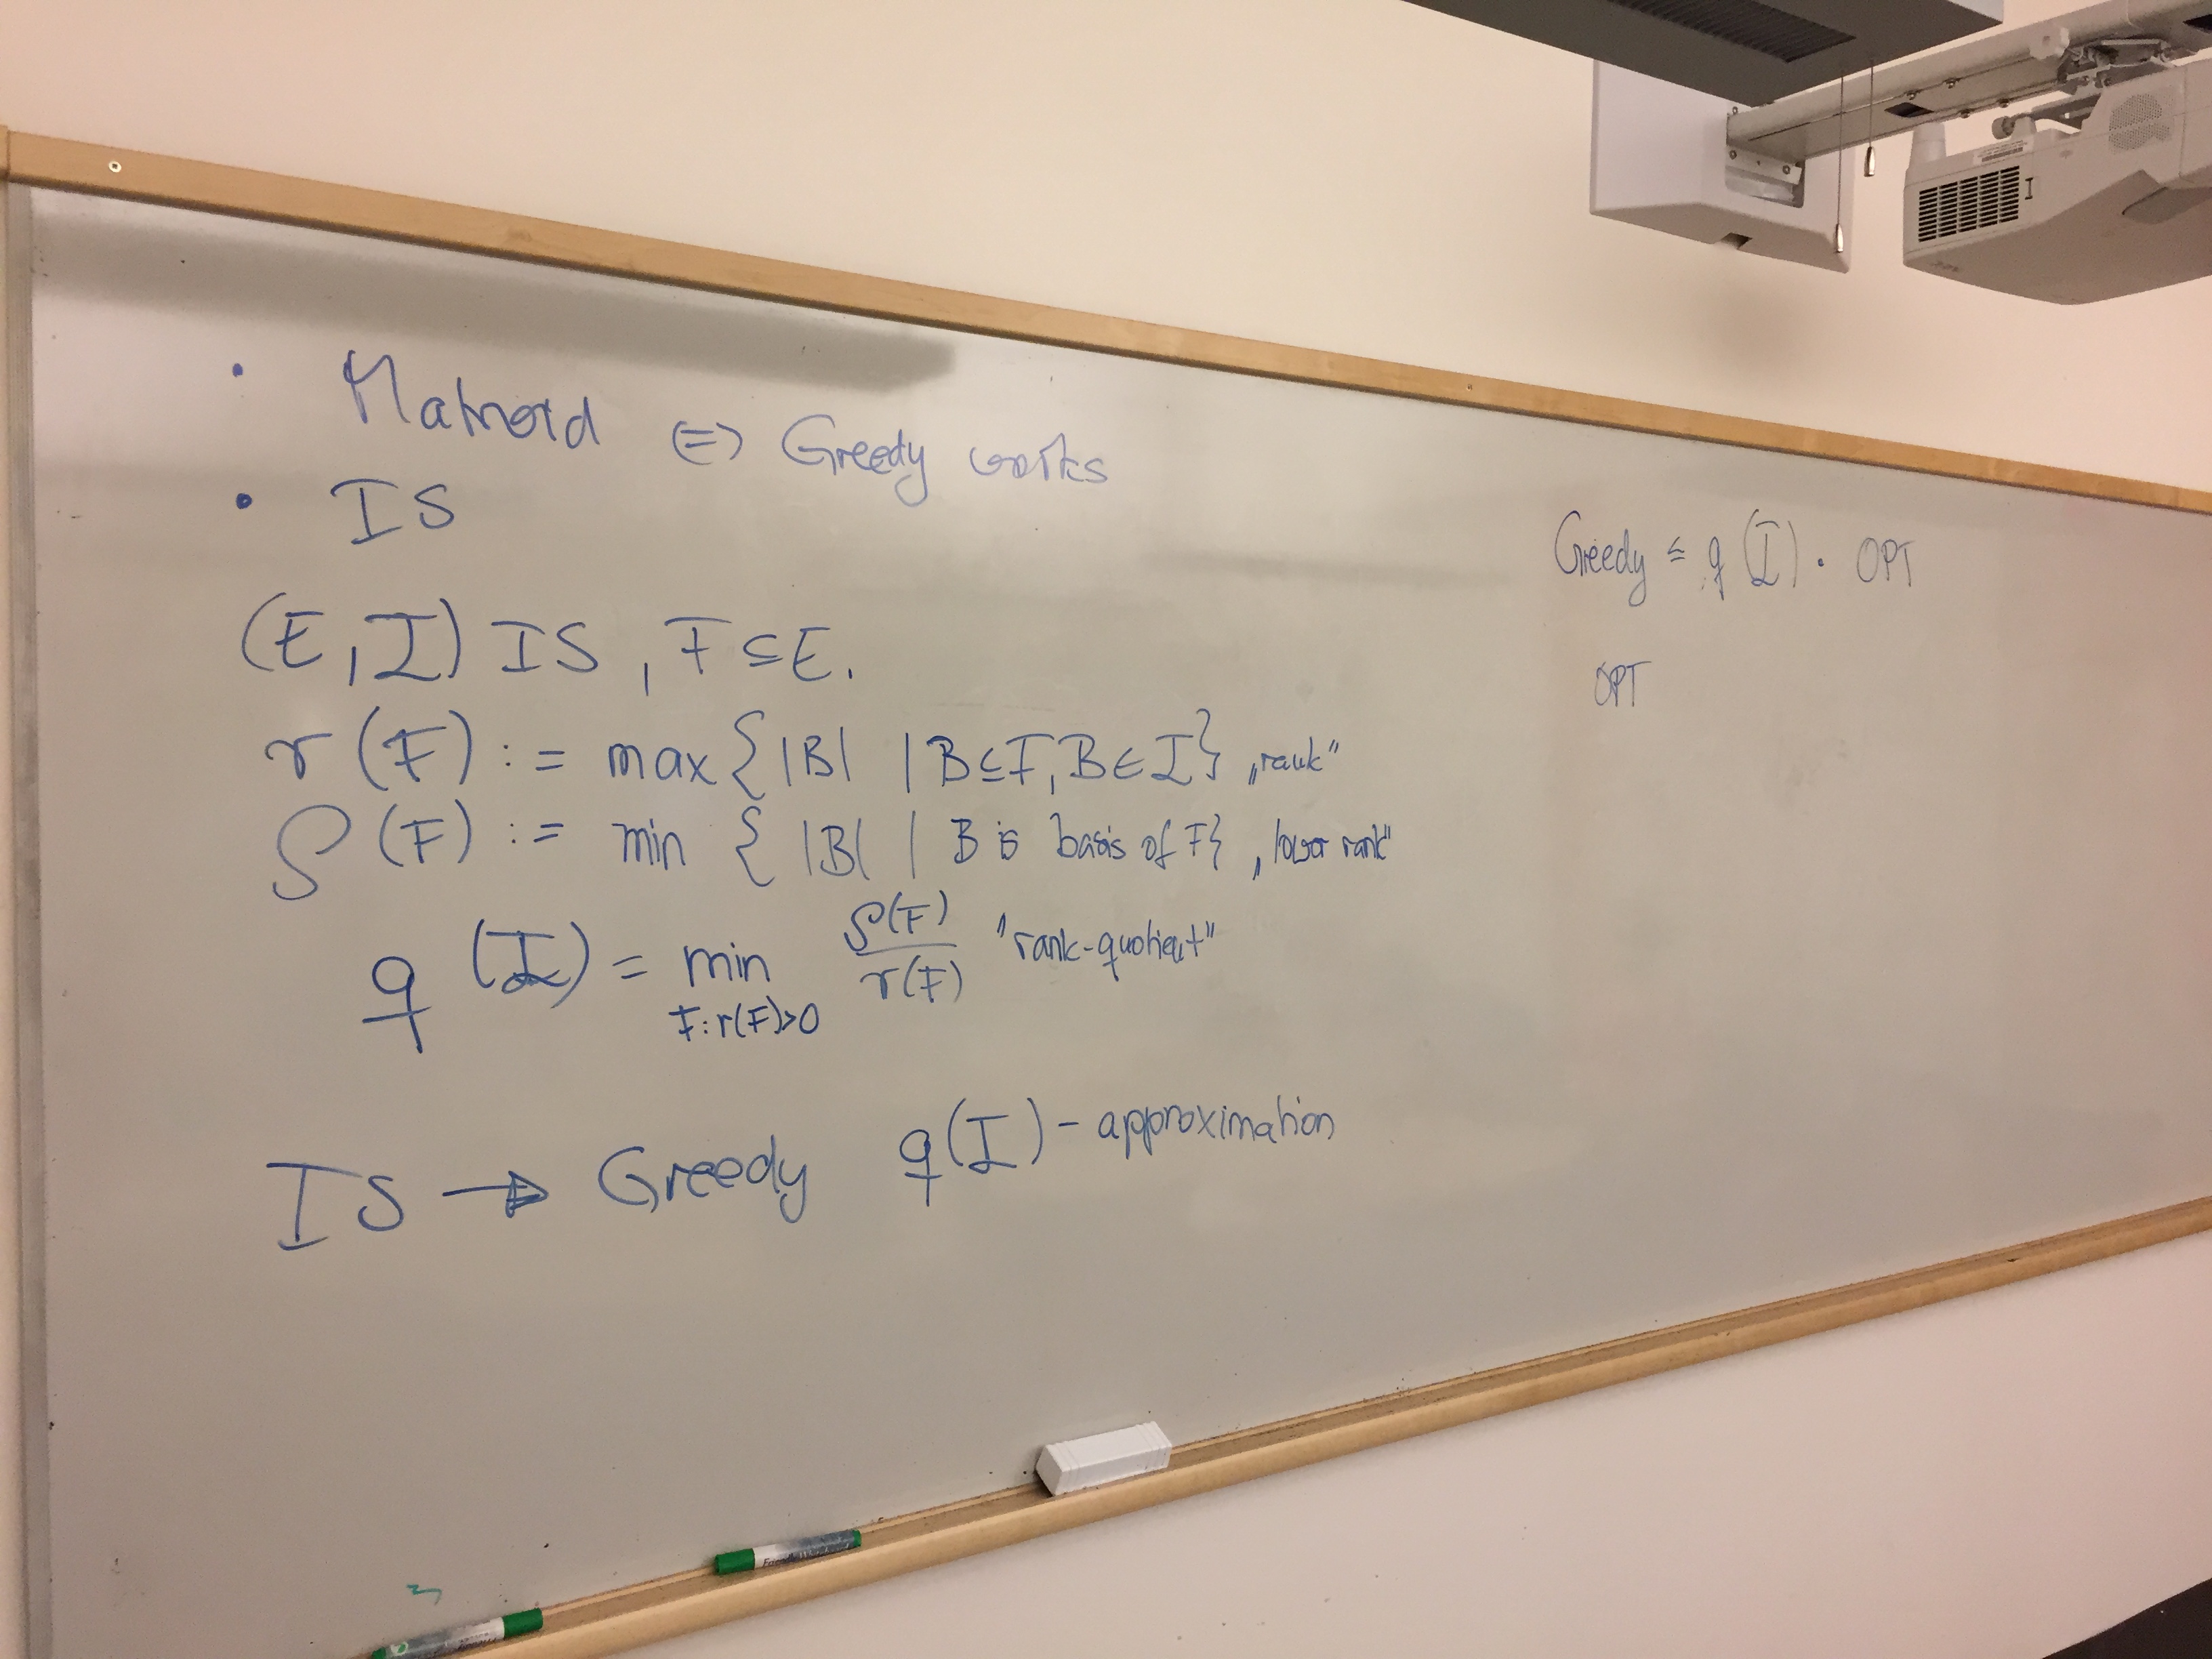 • Matroid ⇔ Greedy works
• IS
(E, I) IS, F ⊆ E.
r(F) := max { |B| | B ⊆ F, B ∈ I } „rank"
ρ(F) := min { |B| | B is basis of F} „lower rank"
q(I) = min ρ(F)/r(F) "rank-quotient"
F: r(F)>0
IS → Greedy q(I) - approximation
Greedy ≤ q(I) · OPT
OPT